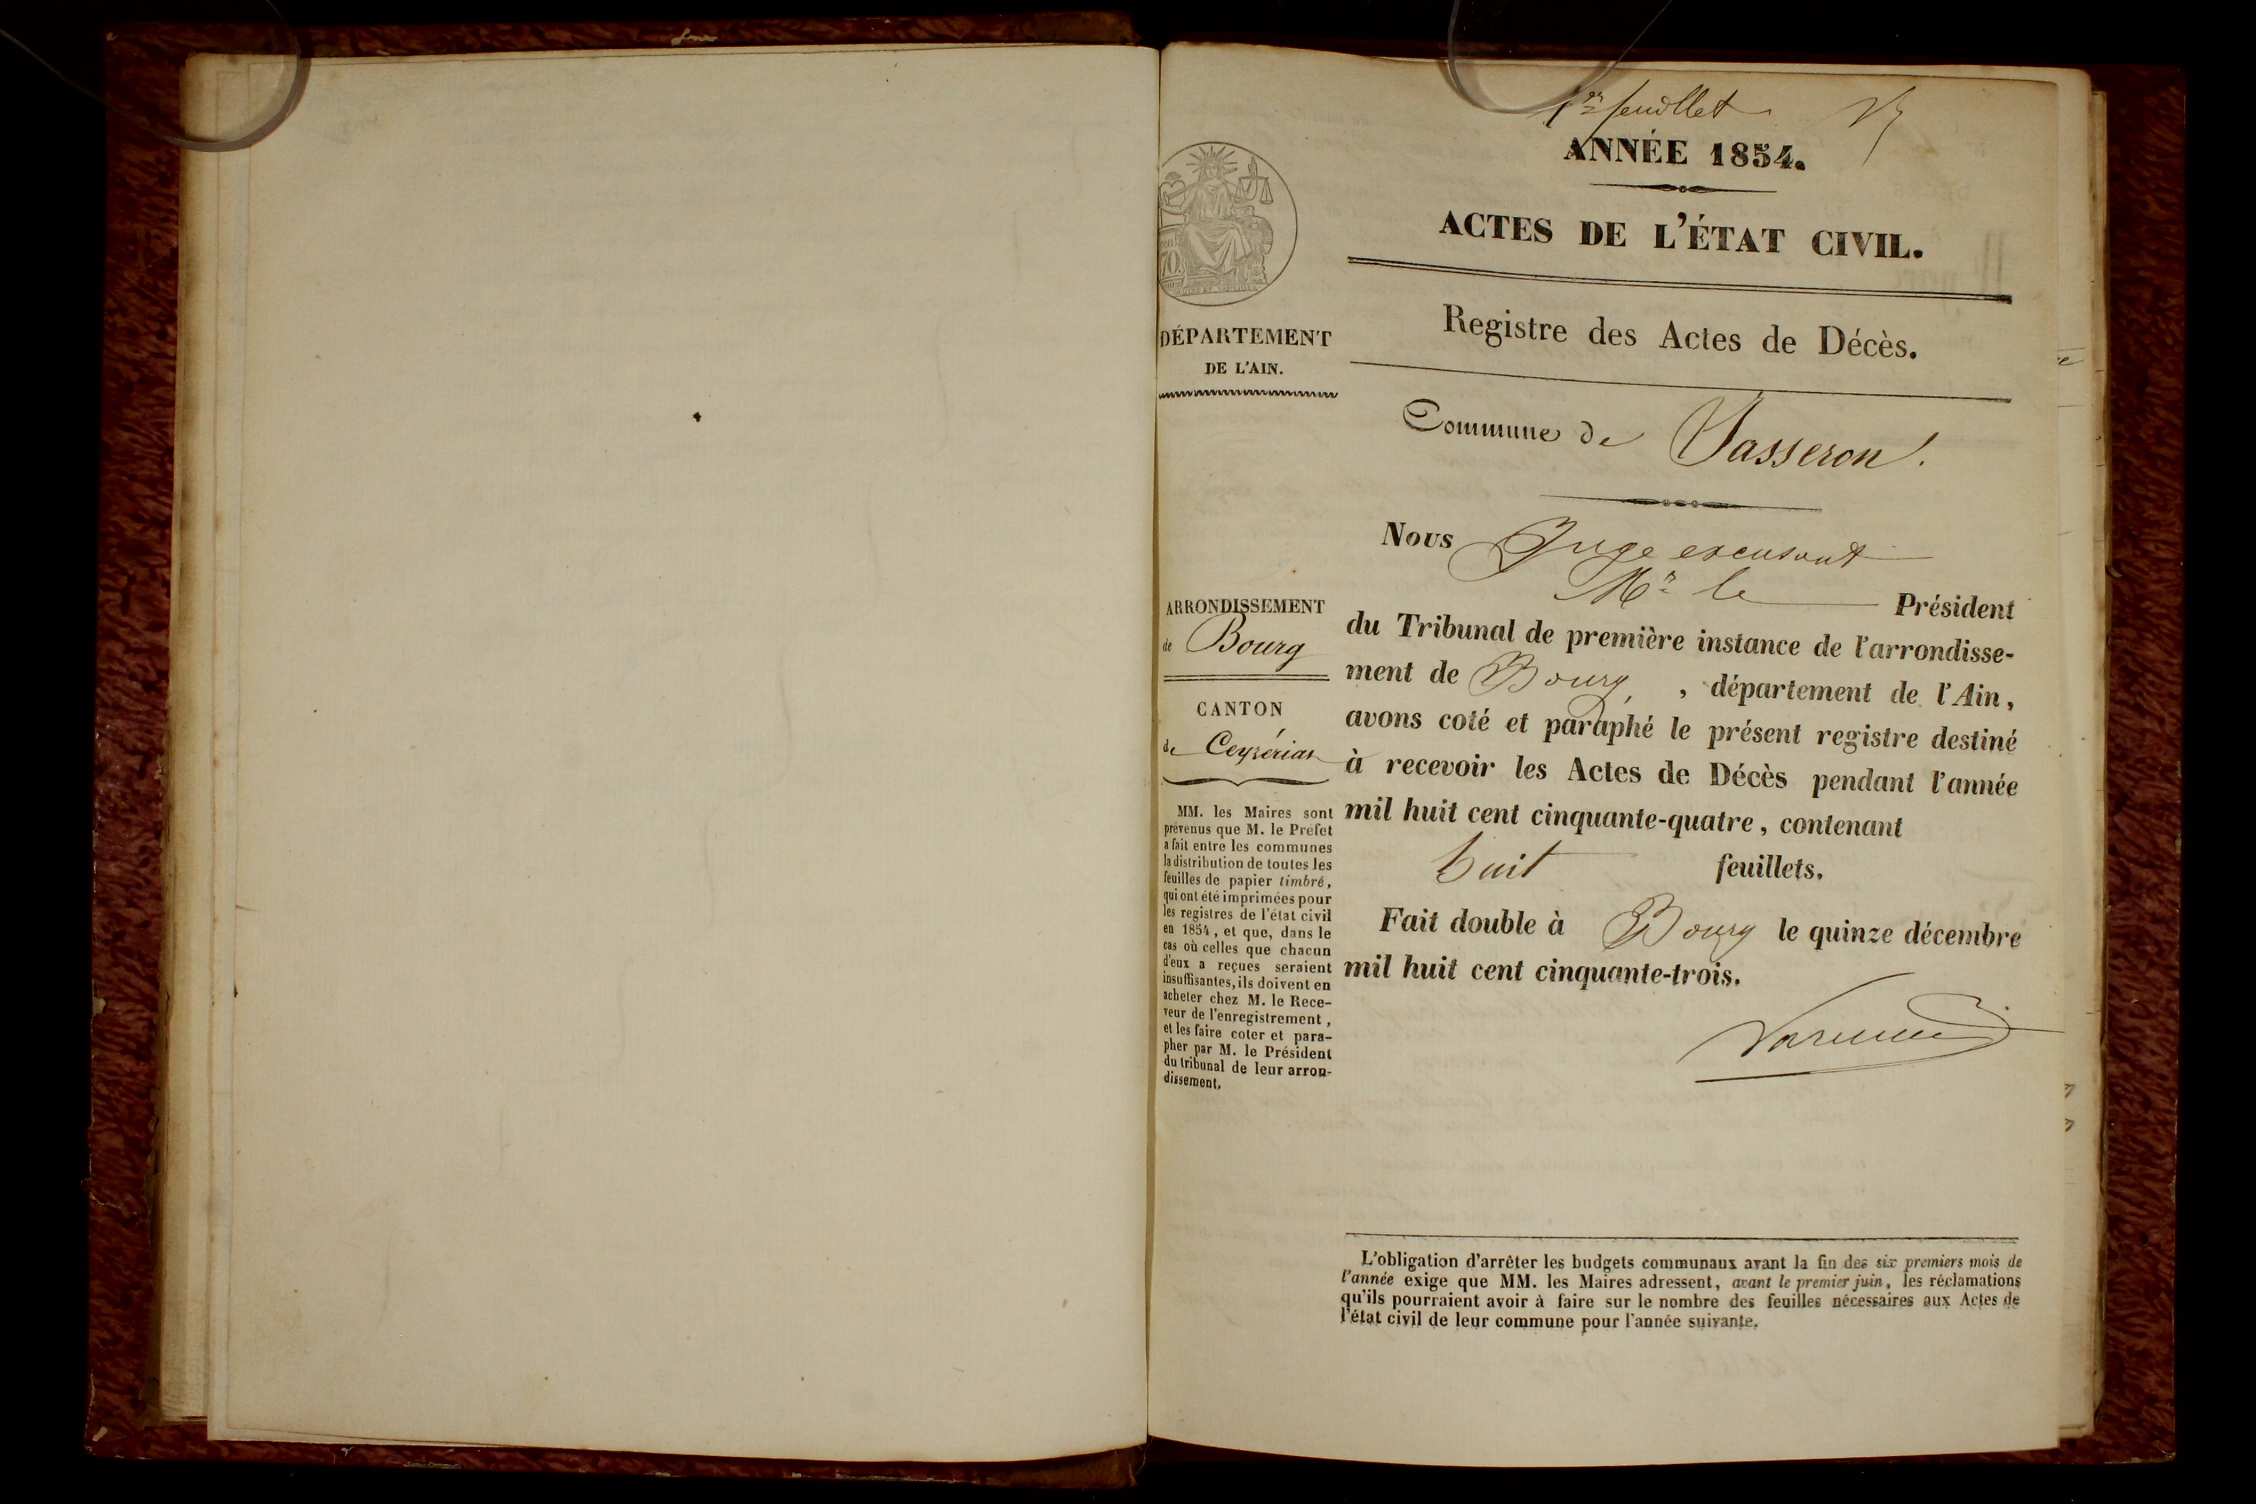 1er feuillet
ANNÉE 1854.
ACTES DE L'ÉTAT CIVIL.
Registre des Actes de Décès.
Commune de Jasseron.
Nous Juge excusant
Mr le Président
du Tribunal de première instance de l'arrondisse-
ment de Bourg, , département de l'Ain,
avons coté et paraphé le présent registre destiné
à recevoir les Actes de Décès pendant l'année
mil huit cent cinquante-quatre, contenant
huit feuillets.
Fait double à Bourg le quinze décembre
mil huit cent cinquante-trois.
DÉPARTEMENT
DE L'AIN.
ARRONDISSEMENT
de Bourg
CANTON
de Ceyzériat
MM. les Maires sont
prévenus que M. le Préfet
a fait entre les communes
la distribution de toutes les
feuilles de papier timbré,
qui ont été imprimées pour
les registres de l'état civil
en 1854, et que, dans le
cas où celles que chacun
d'eux a reçues seraient
insuffisantes, ils doivent en
acheter chez M. le Rece-
veur de l'enregistrement,
et les faire coter et para-
pher par M. le Président
du tribunal de leur arron-
dissement.
L'obligation d'arrêter les budgets communaux avant la fin des six premiers mois de
l'année exige que MM. les Maires adressent, avant le premier juin, les réclamations
qu'ils pourraient avoir à faire sur le nombre des feuilles nécessaires aux Actes de
l'état civil de leur commune pour l'année suivante.